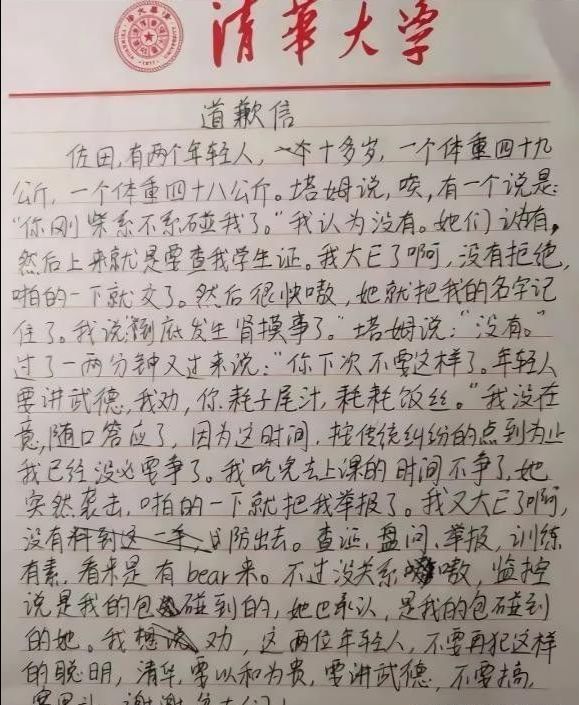 清華大学
道歉信
佐田,有两个年轻人,一个十多岁,一个体重四十九
公斤,一个体重四十八公斤。塔姆说,唉,有一个说是:
"你刚柴系不系碰我了。"我认为没有。她们说有,
然后上来就是要查我学生证。我大E了啊,没有拒绝,
啪的一下就交了。然后很快嗷,她就把我的名字记
住了。我说"到底发生肾摸事了。"塔姆说:"没有。"
过了一两分钟又过来说:"你下次不要这样了。年轻人
要讲武德,我劝,你耗子尾汁,耗耗饭丝。"我没在
意,随口答应了,因为这时间,按传统纠纷的点到为止
我已经没必要争了。我吃完去上课的时间不争了,她
突然袭击,啪的一下就把我举报了。我又大E了啊,
没有料到这一手,防出去。查证,盘问,举报,训练
有素,看来是有bear来。不过没关系嗷,监控
说是我的包碰到的,她也承认,是我的包碰到
的她。我劝,这两位年轻人,不要再犯这样
的聪明,清华要以和为贵,要讲武德,不要搞